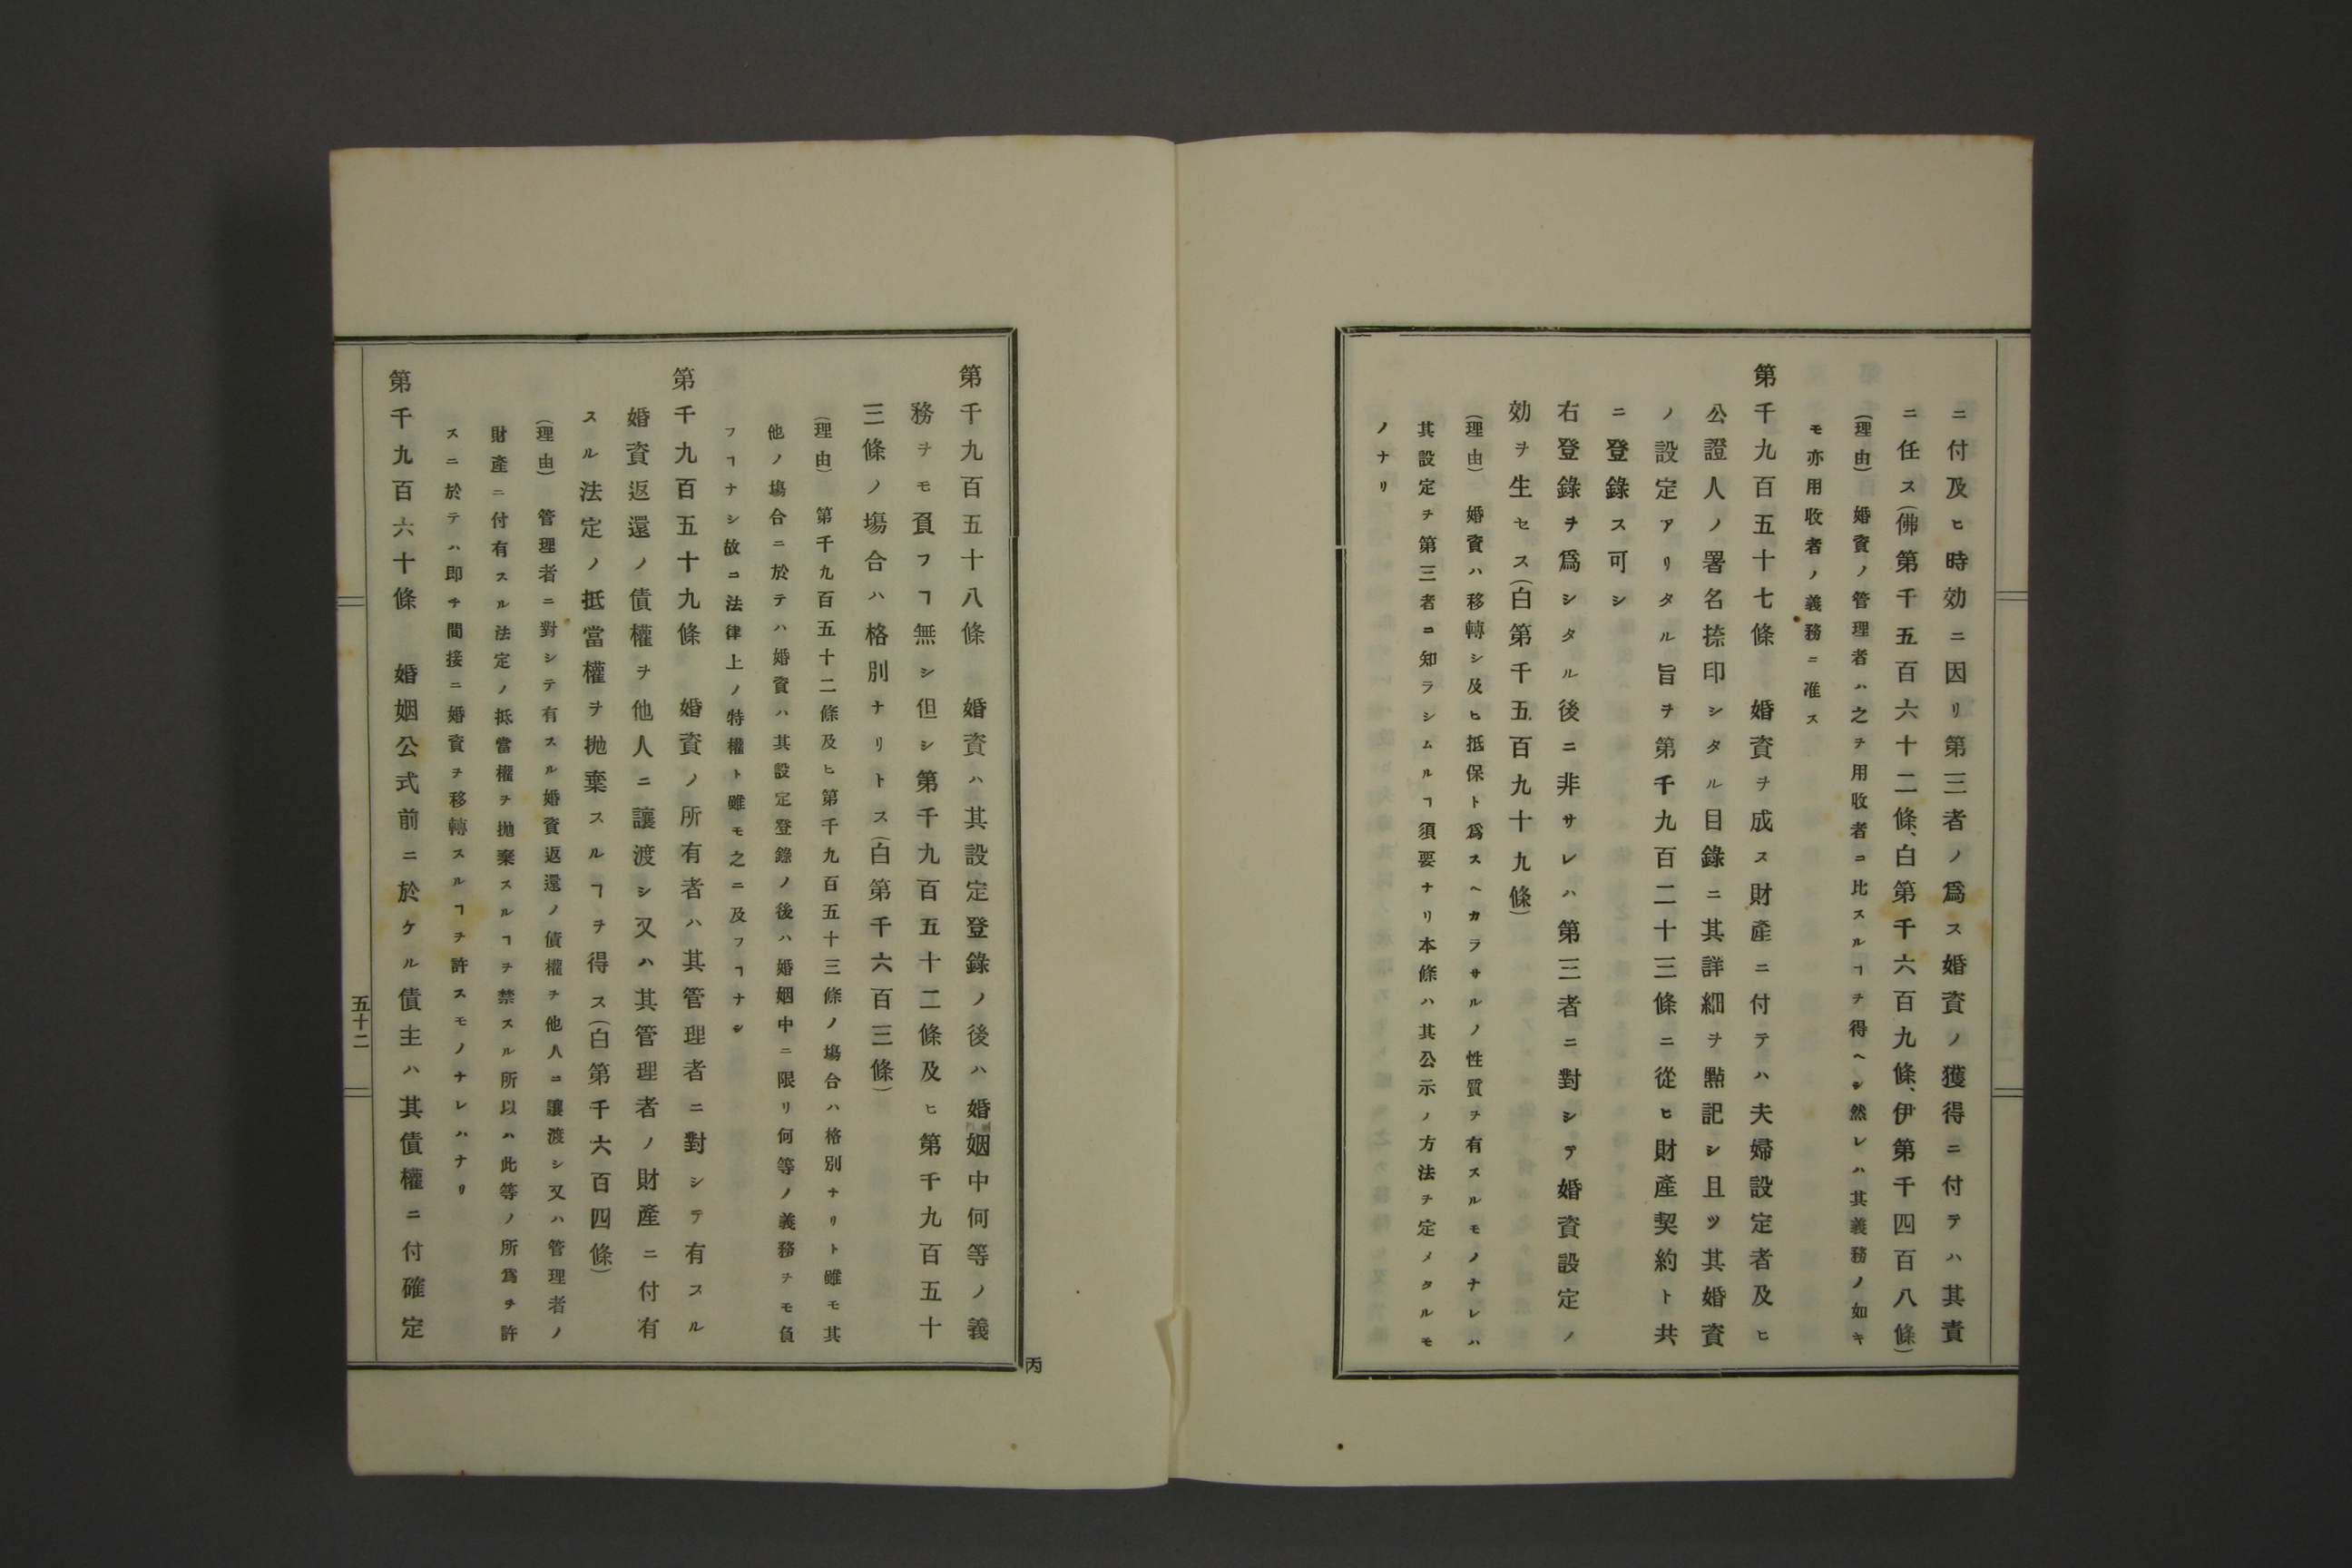 ニ付及ヒ時効ニ因リ第三者ノ爲ス婚資ノ獲得ニ付テハ其責
ニ任ス(佛第千五百六十二條、白第千六百九條、伊第千四百八條)
(理由) 婚資ノ管理者ハ之ヲ用收者ニ比スルヿヲ得ヘシ然レハ其義務ノ如キ
モ亦用收者ノ義務ニ准ス
第千九百五十七條 婚資ヲ成ス財産ニ付テハ夫婦設定者及ヒ
公證人ノ署名捺印シタル目錄ニ其詳細ヲ㸃記シ且ツ其婚資
ノ設定アリタル旨ヲ第千九百二十三條ニ從ヒ財産契約ト共
ニ登錄ス可シ
右登錄ヲ爲シタル後ニ非サレハ第三者ニ對シテ婚資設定ノ
効ヲ生セス(白第千五百九十九條)
(理由) 婚資ハ移轉シ及ヒ抵保ト爲スヘカラサルノ性質ヲ有スルモノナレハ
其設定ヲ第三者ニ知ラシムルヿ須要ナリ本條ハ其公示ノ方法ヲ定メタルモ
ノナリ
第千九百五十八條 婚資ハ其設定登錄ノ後ハ婚姻中何等ノ義
務ヲモ負フヿ無シ但シ第千九百五十二條及ヒ第千九百五十
三條ノ塲合ハ格別ナリトス(白第千六百三條)
(理由) 第千九百五十二條及ヒ第千九百五十三條ノ塲合ハ格別ナリト雖モ其
他ノ塲合ニ於テハ婚資ハ其設定登錄ノ後ハ婚姻中ニ限リ何等ノ義務ヲモ負
フヿナシ故ニ法律上ノ特權ト雖モ之ニ及フヿナシ
第千九百五十九條 婚資ノ所有者ハ其管理者ニ對シテ有スル
婚資返還ノ債權ヲ他人ニ讓渡シ又ハ其管理者ノ財産ニ付有
スル法定ノ抵當權ヲ抛棄スルヿヲ得ス(白第千六百四條)
(理由) 管理者ニ對シテ有スル婚資返還ノ債權ヲ他人ニ讓渡シ又ハ管理者ノ
財産ニ付有スル法定ノ抵當權ヲ抛棄スルヿヲ禁スル所以ハ此等ノ所爲ヲ許
スニ於テハ即チ間接ニ婚資ヲ移轉スルヿヲ許スモノナレハナリ
第千九百六十條 婚姻公式前ニ於ケル債主ハ其債權ニ付確定
五十二
丙